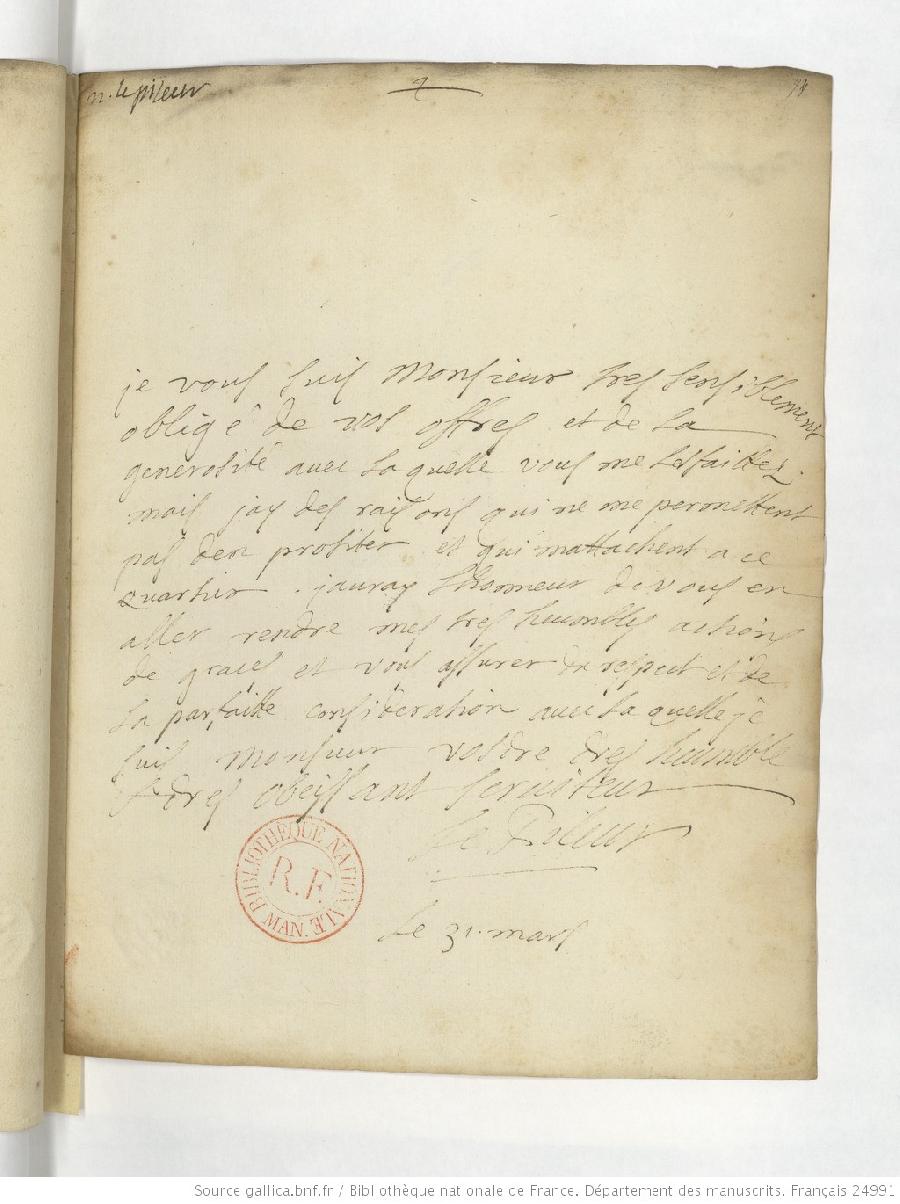 m. le pileur
je vous suis Monsieur tres sensiblement
obligé de vos offres et de la
generosité avec laquelle vous me les faittes.
mais jay des raisons qui ne me permettent
pas den profiter et qui mattachent a ce
quartier. jauray lhonneur de vous en
aller rendre mes tres humbles actions
de graces et vous assurer du respect et de
la parfaitte consideration avec laquelle je
suis Monsieur vostre tres humble
et tres obeissant serviteur
Le Pileur
BIBLIOTHÈQUE NATIONALE MAN.
R.F.
Le 31. mars
Source gallica.bnf.fr / Bibliothèque nationale de France. Département des manuscrits. Français 24991